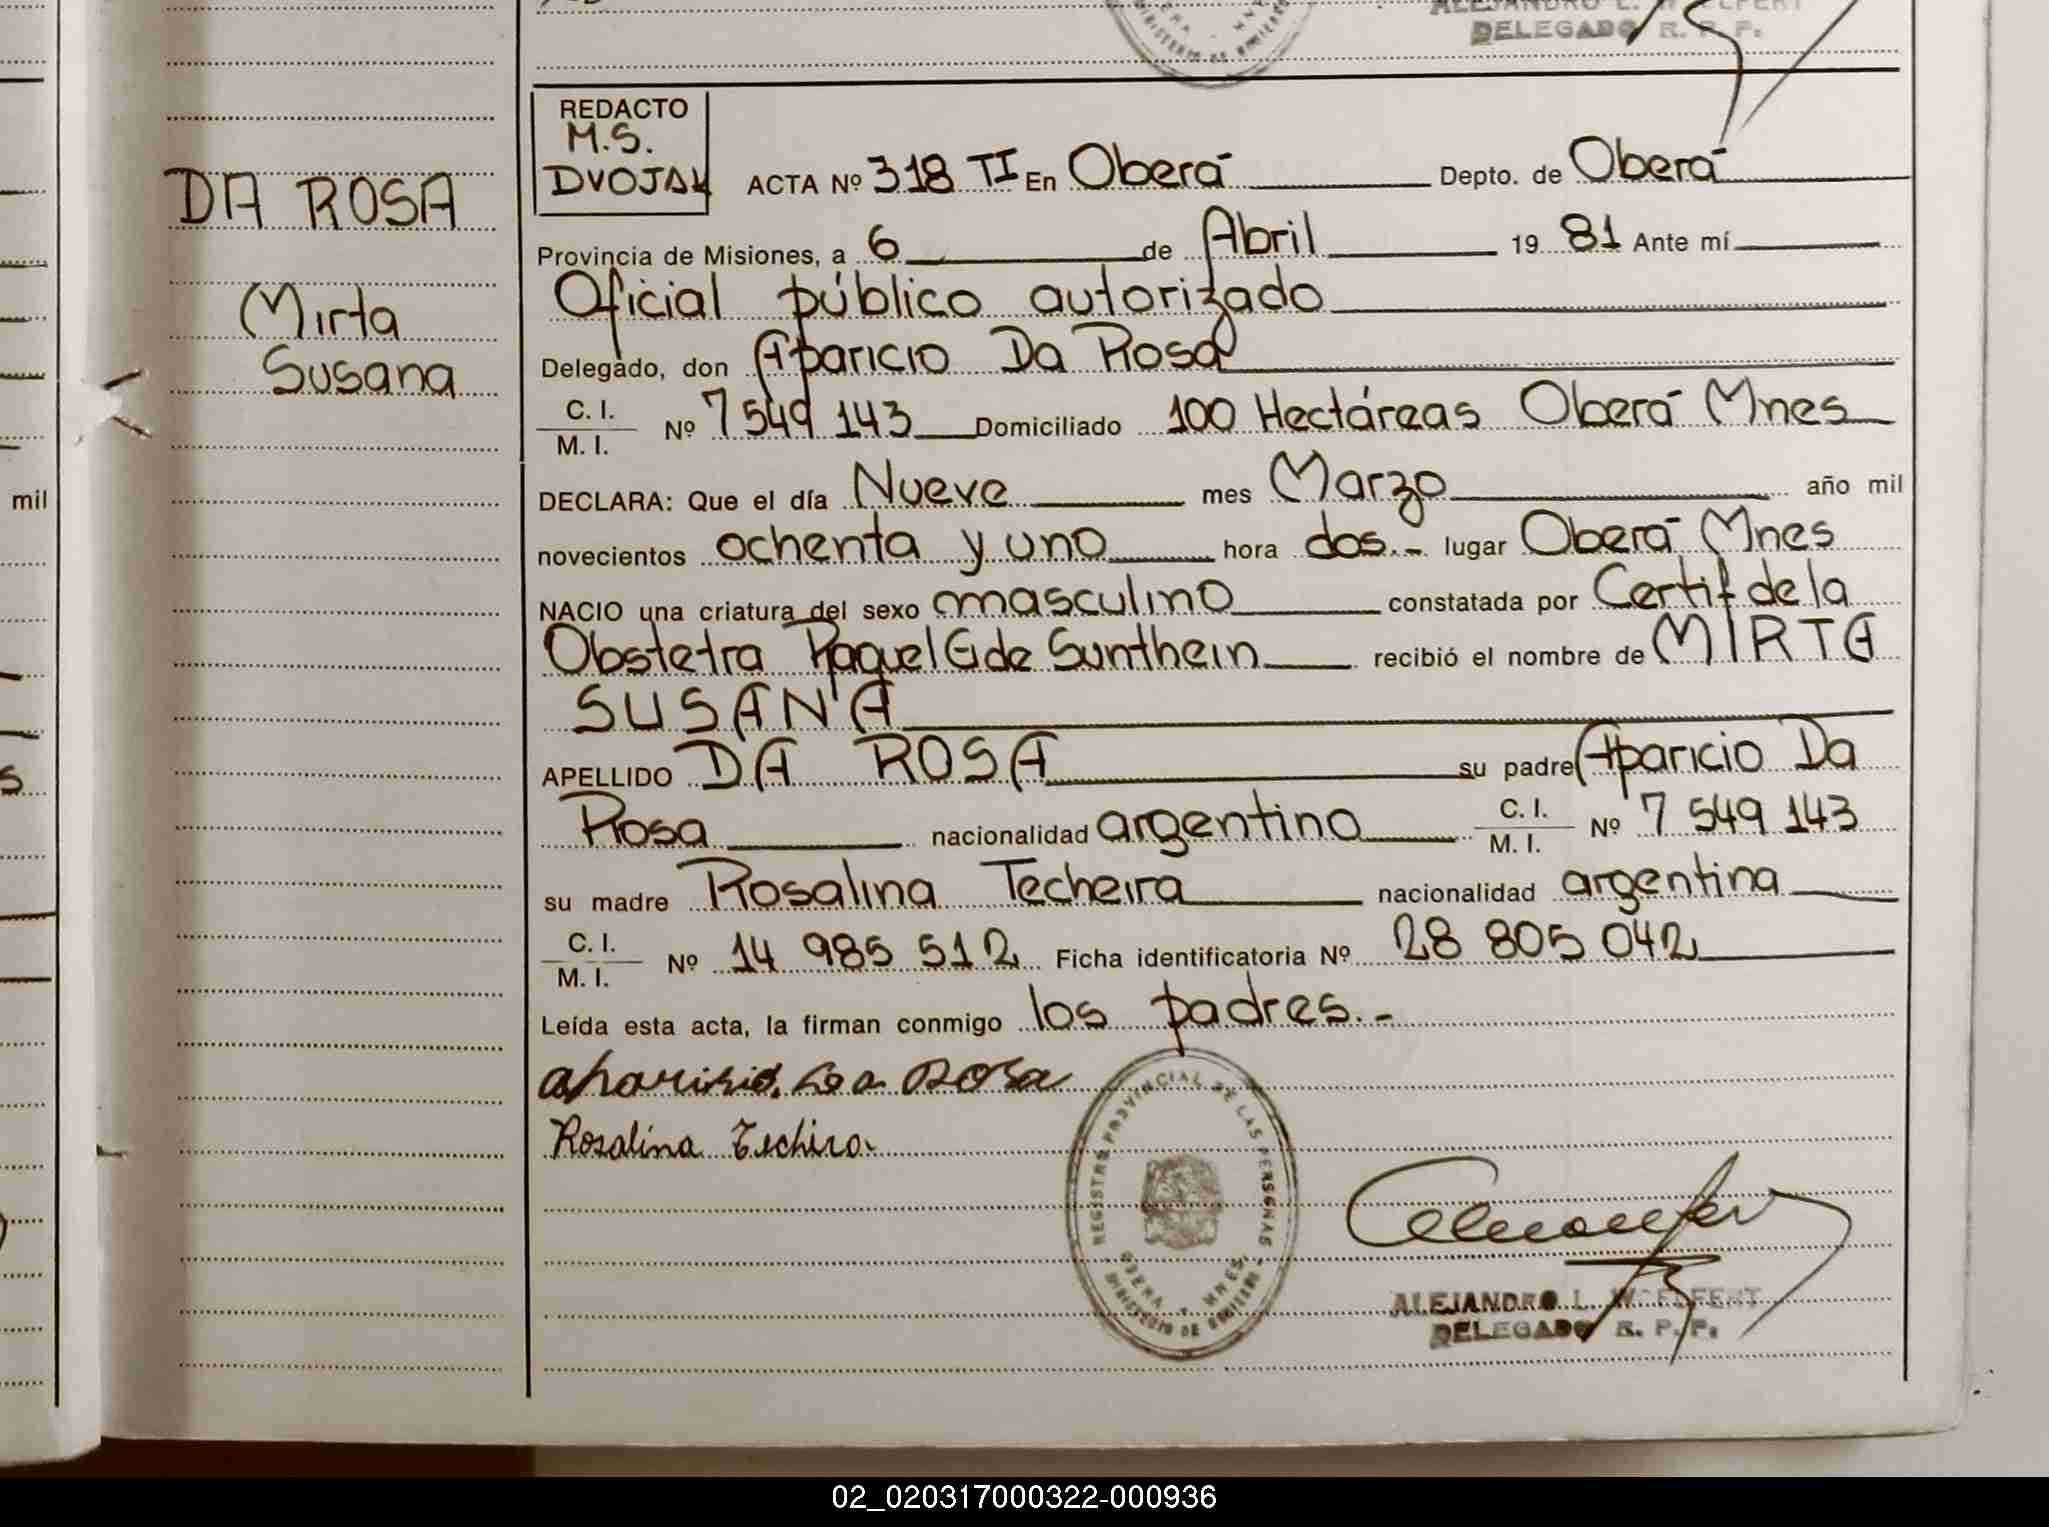 DELEGADO R. P. P.
REDACTO
M.S.
DVOJAK
ACTA Nº 318 TI En Oberá Depto. de Oberá
DA ROSA
Provincia de Misiones, a 6 de Abril 19 81 Ante mí
Oficial público autorizado
Mirta
Delegado, don Aparicio Da Rosa
Susana
C. I.
M. I. Nº 7 549 143 Domiciliado 100 Hectáreas Oberá Mnes
DECLARA: Que el día Nueve mes Marzo año mil
mil
novecientos ochenta y uno hora dos.- lugar Oberá Mnes
NACIO una criatura del sexo masculino constatada por Certif de la
Obstetra Raquel G de Sunthein recibió el nombre de MIRTA
SUSANA
APELLIDO DA ROSA su padre Aparicio Da
s
Rosa nacionalidad argentino C. I.
M. I. Nº 7 549 143
su madre Rosalina Techeira nacionalidad argentina
C. I.
M. I. Nº 14 985 512 Ficha identificatoria Nº 28 805 042
Leída esta acta, la firman conmigo los padres.-
Rosalina Techira
REGISTRO PROVINCIAL DE LAS PERSONAS
OBERA - MNES.
MINISTERIO DE GOBIERNO
ALEJANDRO L. WOELFERT
DELEGADO R. P. P.
02_020317000322-000936